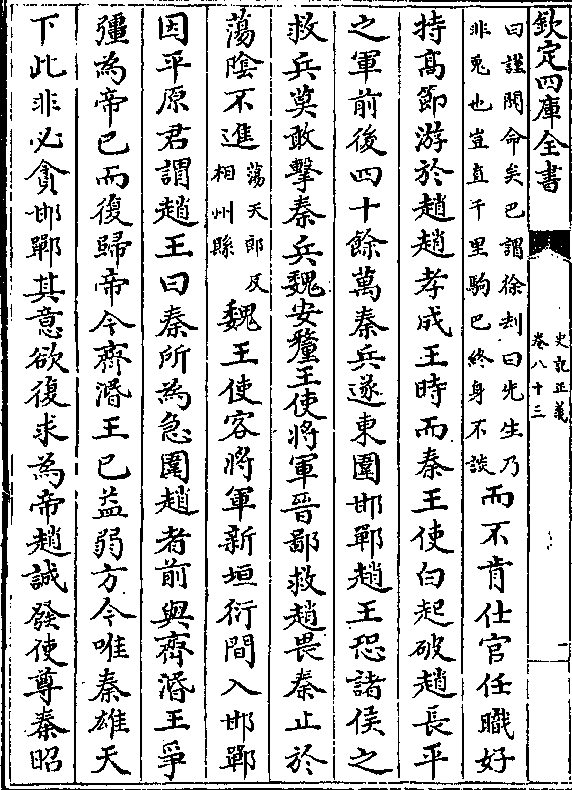 欽定四庫全書
史記正義
卷八十三
曰謹聞命矣巴謂徐刦曰先生乃
非兎也豈直千里駒巴終身不談
而不肯仕官任職好
持高節游於趙趙孝成王時而秦王使白起破趙長平
之軍前後四十餘萬秦兵遂東圍邯鄲趙王恐諸侯之
救兵莫敢擊秦兵魏安釐王使將軍晉鄙救趙畏秦止於
蕩隂不進
蕩天郎反
相州縣
魏王使客將軍新垣衍間入邯鄲
因平原君謂趙王曰秦所為急圍趙者前與齊湣王爭
彊為帝已而復歸帝今齊湣王已益弱方今唯秦雄天
下此非必貪邯鄲其意欲復求為帝趙誠發使尊秦昭